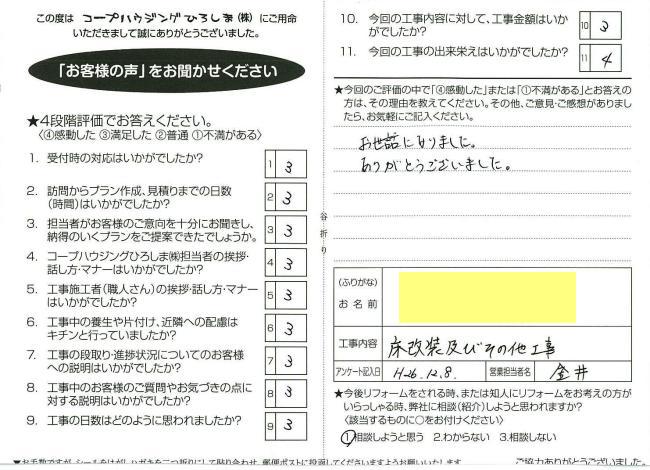 この度は コープハウジングひろしま(株) にご用命
いただきまして誠にありがとうございました。
「お客様の声」をお聞かせください
★4段階評価でお答えください。
〈④感動した ③満足した ②普通 ①不満がある〉
1. 受付時の対応はいかがでしたか?
1 3
2. 訪問からプラン作成、見積りまでの日数
(時間)はいかがでしたか?
2 3
3. 担当者がお客様のご意向を十分にお聞きし、
納得のいくプランをご提案できたでしょうか。
3 3
4. コープハウジングひろしま㈱担当者の挨拶・
話し方・マナーはいかがでしたか?
4 3
5. 工事施工者(職人さん)の挨拶・話し方・マナー
はいかがでしたか?
5 3
6. 工事中の養生や片付け、近隣への配慮は
キチンと行っていましたか?
6 3
7. 工事の段取り・進捗状況についてのお客様
への説明はいかがでしたか?
7 3
8. 工事中のお客様のご質問やお気づきの点に
対する説明はいかがでしたか?
8 3
9. 工事の日数はどのように思われましたか?
9 3
谷折り
10. 今回の工事内容に対して、工事金額はいか
がでしたか?
10 3
11. 今回の工事の出来栄えはいかがでしたか?
11 4
★今回のご評価の中で「④感動した」または「①不満がある」とお答え
の方は、その理由を教えてください。その他、ご意見・ご感想がありまし
たら、お気軽にご記入ください。
お世話になりました。
ありがとうございました。
(ふりがな)
お名前
工事内容 床改装及びその他工事
アンケート記入日 H26.12.8. 営業担当者名 金井
★今後リフォームをされる時、または知人にリフォームをお考えの方が
いらっしゃる時、弊社に相談(紹介)しようと思われますか?
〈該当するものに○をお付けください〉
1.相談しようと思う 2.わからない 3.相談しない
▼お手数ですが、シールをはがしハガキを二つ折りにして貼り合わせ、郵便ポストに投函してくださいますようお願いいたします。
ご協力ありがとうございました。